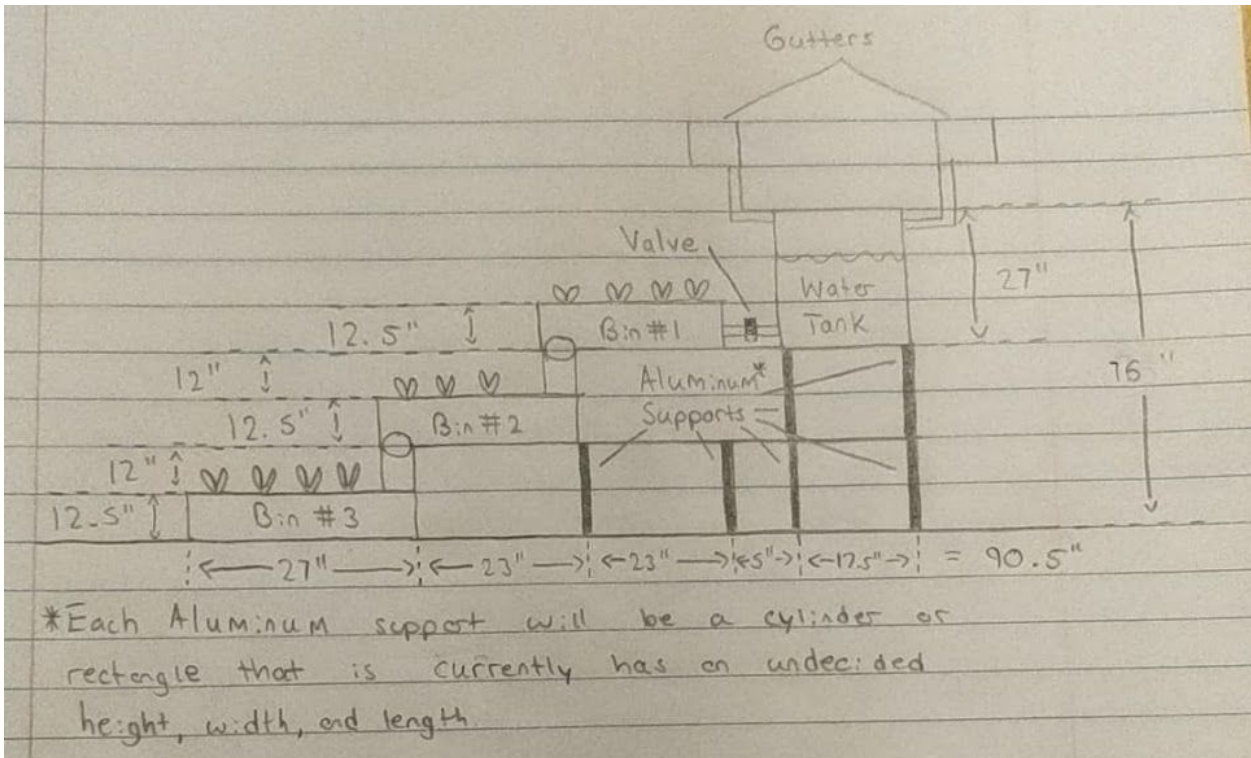 Gutters
Valve
27"
Water
Tank
12.5"
Bin #1
12"
Aluminum*
76"
12.5"
Bin #2
Supports
12"
12.5"
Bin #3
27" 23" 23" 5" 17.5" = 90.5"
*Each Aluminum support will be a cylinder or
rectangle that is currently has an undecided
height, width, and length